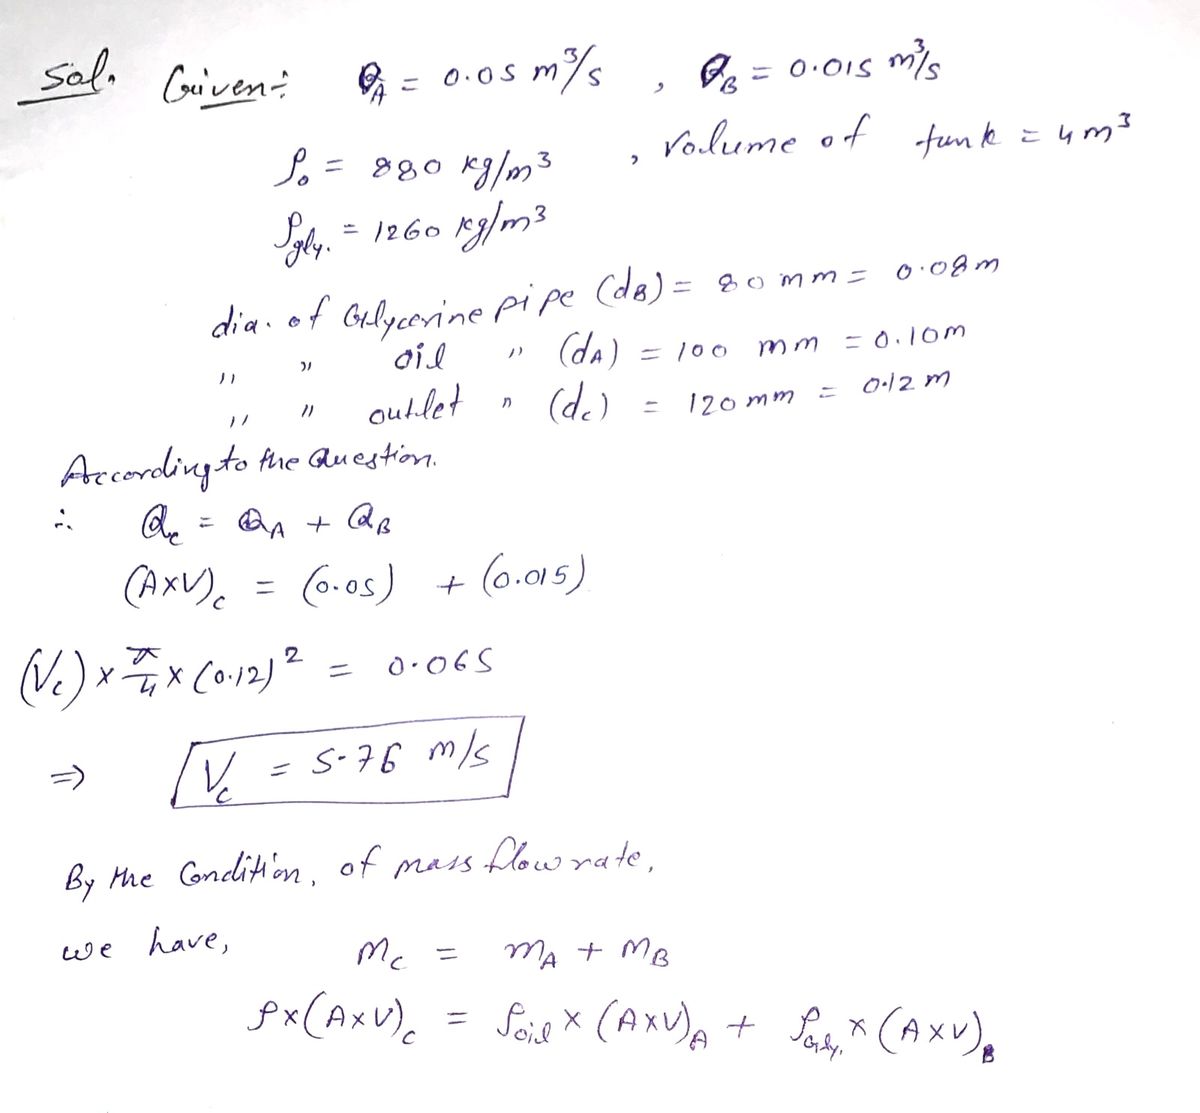 Sol. Given:- Q_A = 0.05 m³/s , Q_B = 0.015 m³/s
ρ_o = 880 kg/m³ , Volume of tank = 4 m³
ρ_gly. = 1260 kg/m³
dia. of Glycerine pipe (d_B) = 80 mm = 0.08 m
" " oil " (d_A) = 100 mm = 0.10 m
" " outlet " (d_c) = 120 mm = 0.12 m
According to the Question.
∴ Q_c = Q_A + Q_B
(A×V)_c = (0.05) + (0.015)
(V_c) × π/4 × (0.12)² = 0.065
⇒ V_c = 5.76 m/s
By the Condition, of mass flow rate,
we have, m_c = m_A + m_B
ρ×(A×V)_c = ρ_oil × (A×V)_A + ρ_Gly. × (A×V)_B